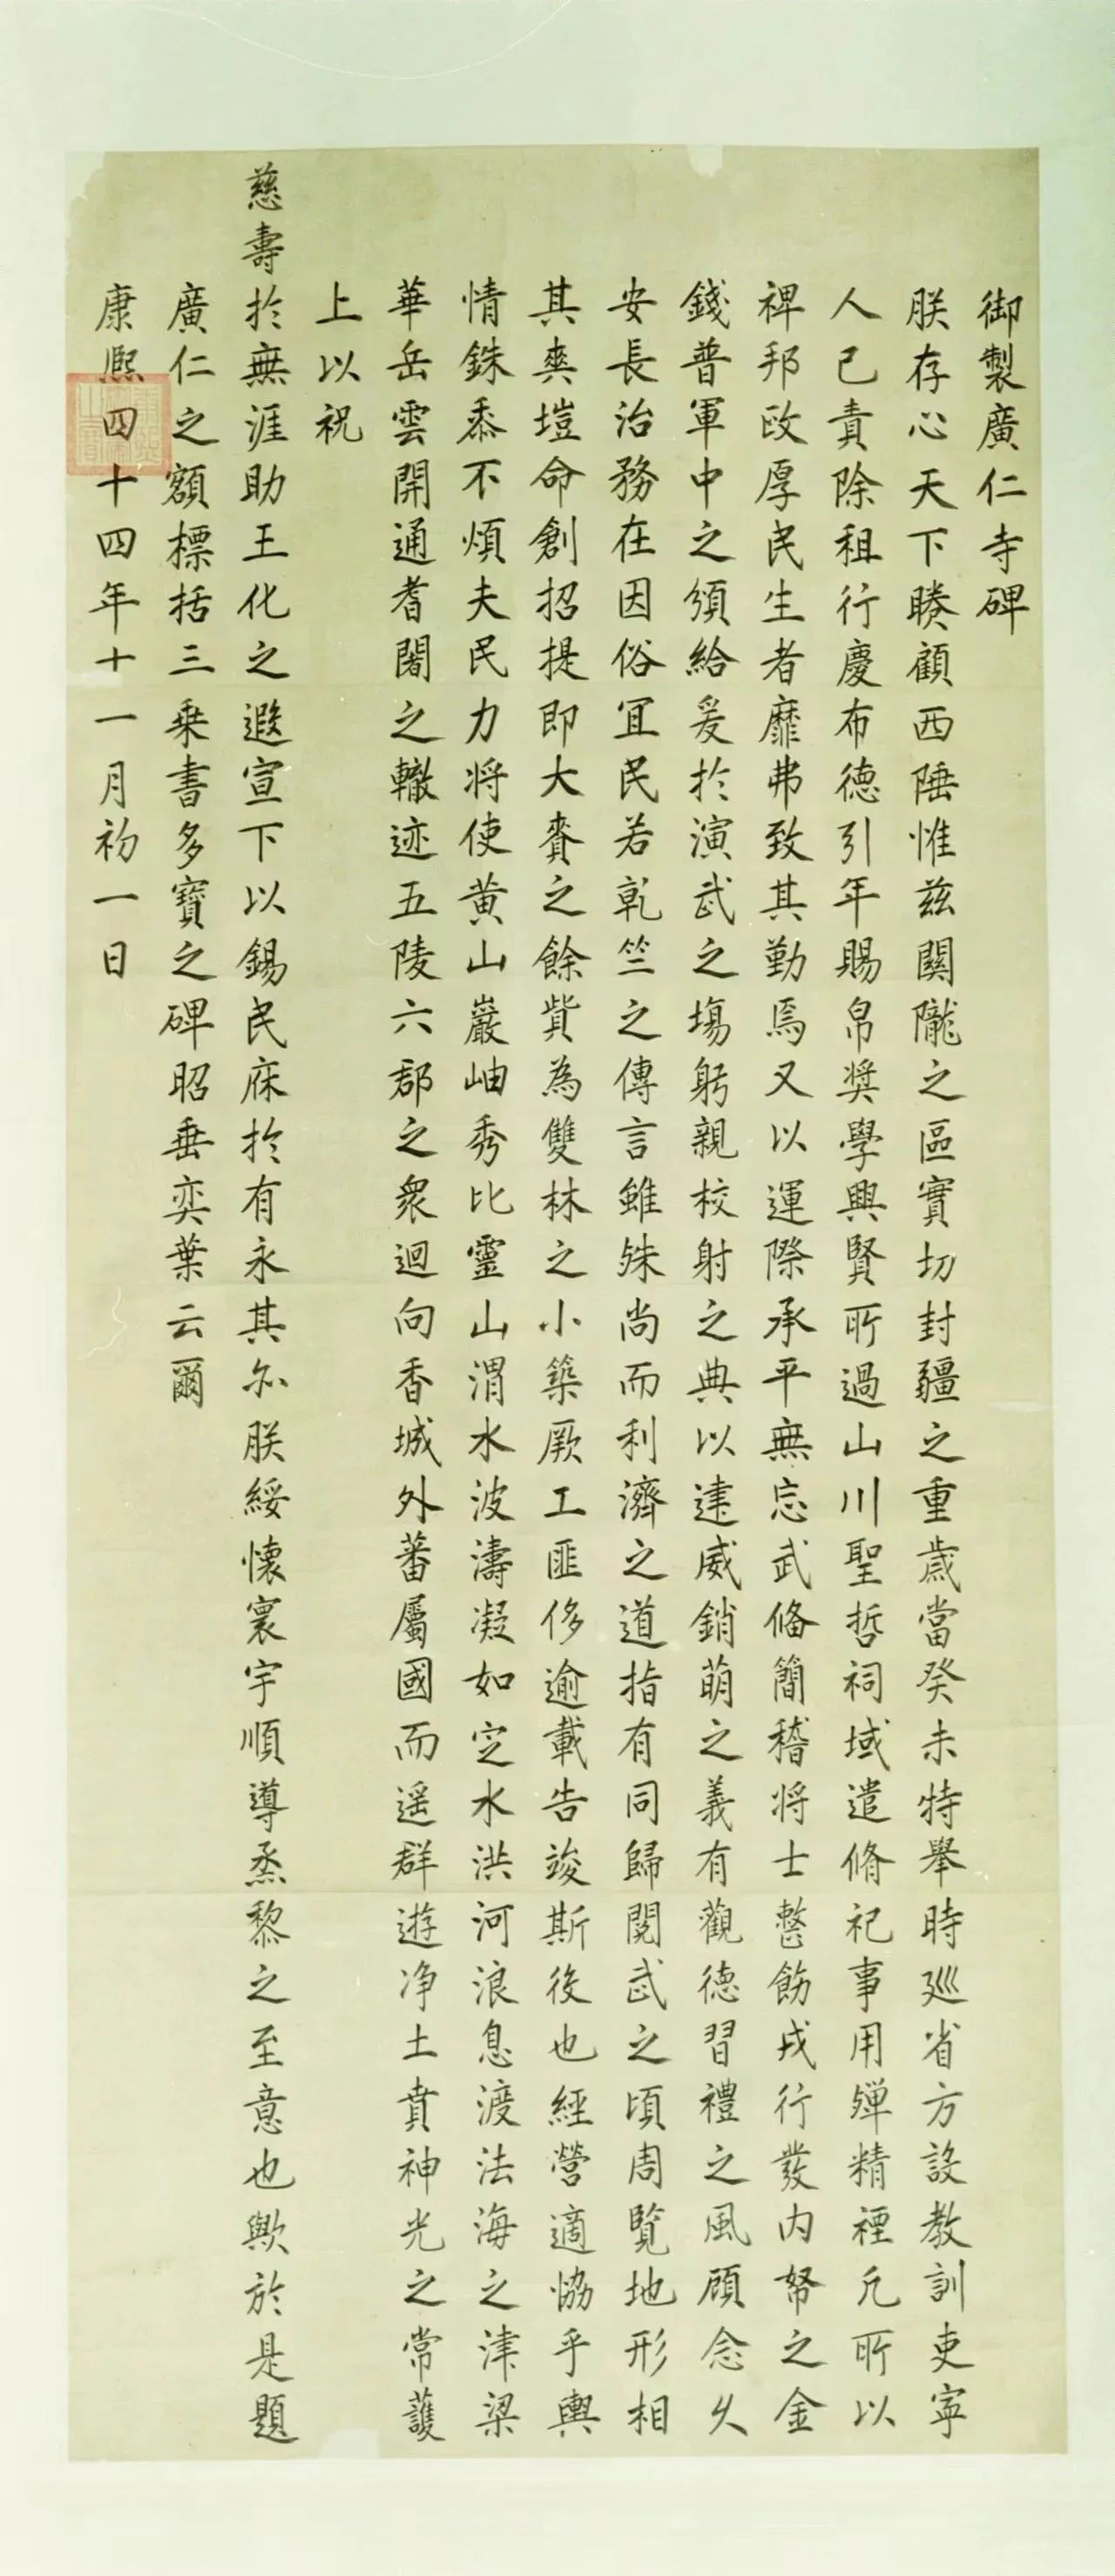 御製廣仁寺碑
朕存心天下睠顧西陲惟茲關隴之區實切封疆之重歲當癸未特舉時廵省方設教訓吏寧
人已責除租行慶布德引年賜帛奨學興賢所過山川聖哲祠域遣脩祀事用殫精禋凡所以
禆邦政厚民生者靡弗致其勤焉又以運際承平無忘武備簡稽將士整飭戎行發内帑之金
錢普軍中之頒給爰於演武之塲躬親校射之典以建威銷萌之義有觀德習禮之風顧念久
安長治務在因俗宜民若乾竺之傳言雖殊尚而利濟之道指有同歸閱武之頃周覽地形相
其爽塏命創招提即大賚之餘貲為雙林之小築厥工匪侈逾載告竣斯役也經營適恊乎輿
情銖黍不煩夫民力將使黄山巖岫秀比靈山渭水波濤凝如定水洪河浪息渡法海之津梁
華岳雲開通耆闍之轍迹五陵六郡之衆迴向香城外蕃屬國而遥群遊净土賁神光之常護
上以祝
慈壽於無涯助王化之遐宣下以錫民庥於有永其亦朕綏懷寰宇順導烝黎之至意也歟於是題
廣仁之額標括三乗書多寶之碑昭垂奕葉云爾
康熙四十四年十一月初一日